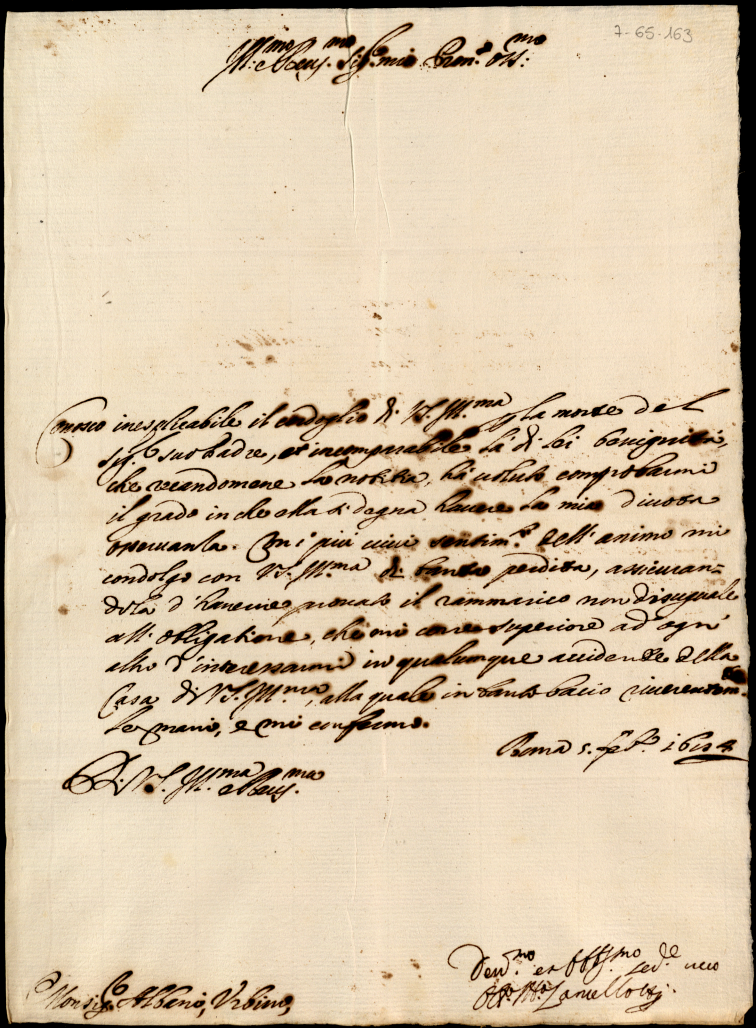 7-65-163
Ill:mo e Reu.mo Sig.r mio Pron.e Oss:mo
Conosco inesplicabile il cordoglio di V.S. Ill.ma p la morte del
Sig.r suo Padre, et incomparabile la di lei benignità,
che recandomene la notitia, hà uoluto comprobarmi
il grado in che ella si degna hauere la mia diuota
osseruanza. Con i più uiui sentim.ti dell' animo mi
condolgo con V.S. Ill.ma di tanta perdita, assicuran=
dola d' hauerne prouato il rammarico non disuguale
all' obligatione, che mi corre superiore ad ogn'
altro d' interessarmi in qualunque accidente della
Casa di V.S. Ill.ma, alla quale in tanto bacio riuerentem.te
le mani, e mi confermo.
Roma 5. feb.o 1684
D. V.S. Ill.ma e Reu.ma
Deu.mo et Obblig.mo Ser.re uero
Zaniellotti
Monsig.r Albano, Vrbino